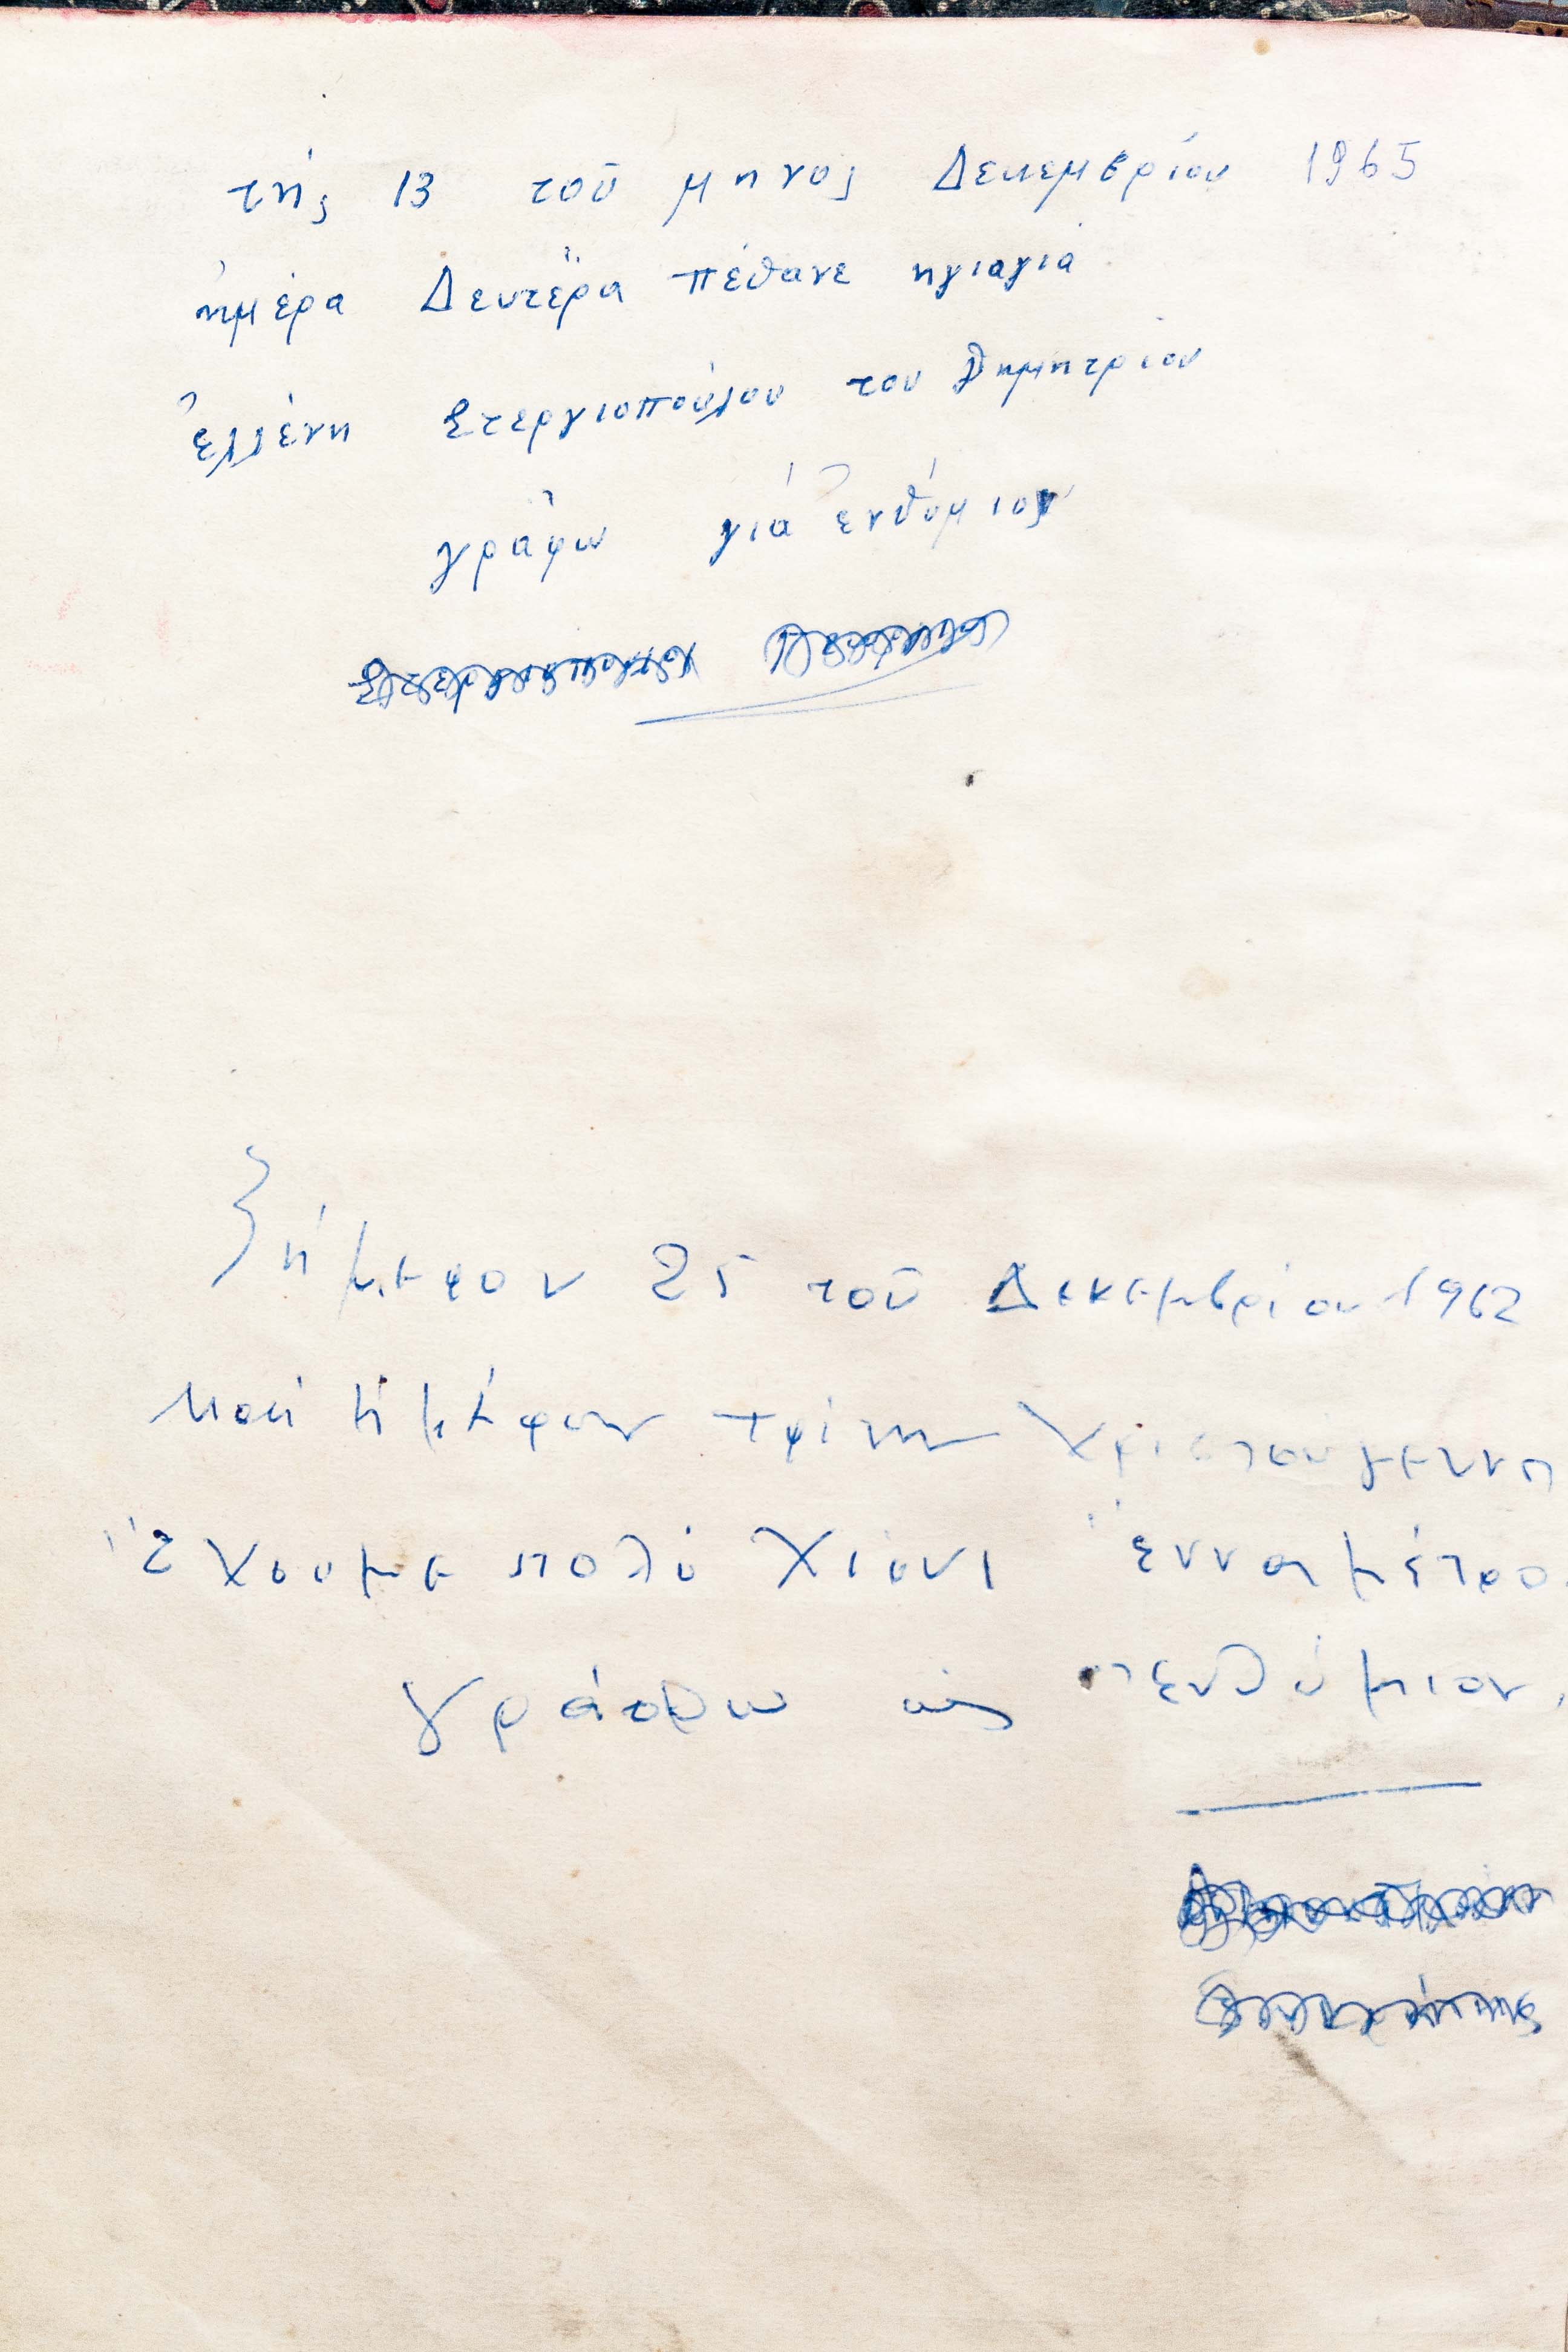 τής 13 τοῦ μηνος Δεκεμβρίου 1965
ἡμέρα Δευτέρα πέθανε ηγιαγιά
ἐλλένη Στεργιοπούλου του Δημητρίου
γράφω γιά ἐνθύμιον
Σήμερον 25 τοῦ Δεκεμβρίου 1962
καί ἡμέρον τρίτη Χριστούγεννα
ἔχουμε πολύ χιόνι ἕννα μέτρο
γράφω ὡς ἐνθύμιον.